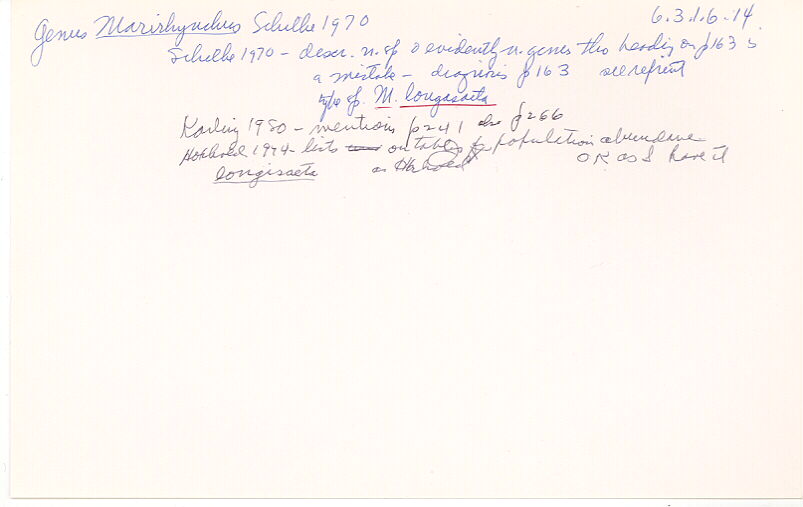 Genus Marirhynchus Schilke 1970 6.3.1.6-14
Schilke 1970 - descr. n. sp & evidently n. genus tho heading on p163 is
a mistake - diagnosis p163 see reprint
type sp. M. longasaeta
Karling 1980 - mentions p241 also p266
1974 - lists on table for population abundance
longisaeta as OK as I have it